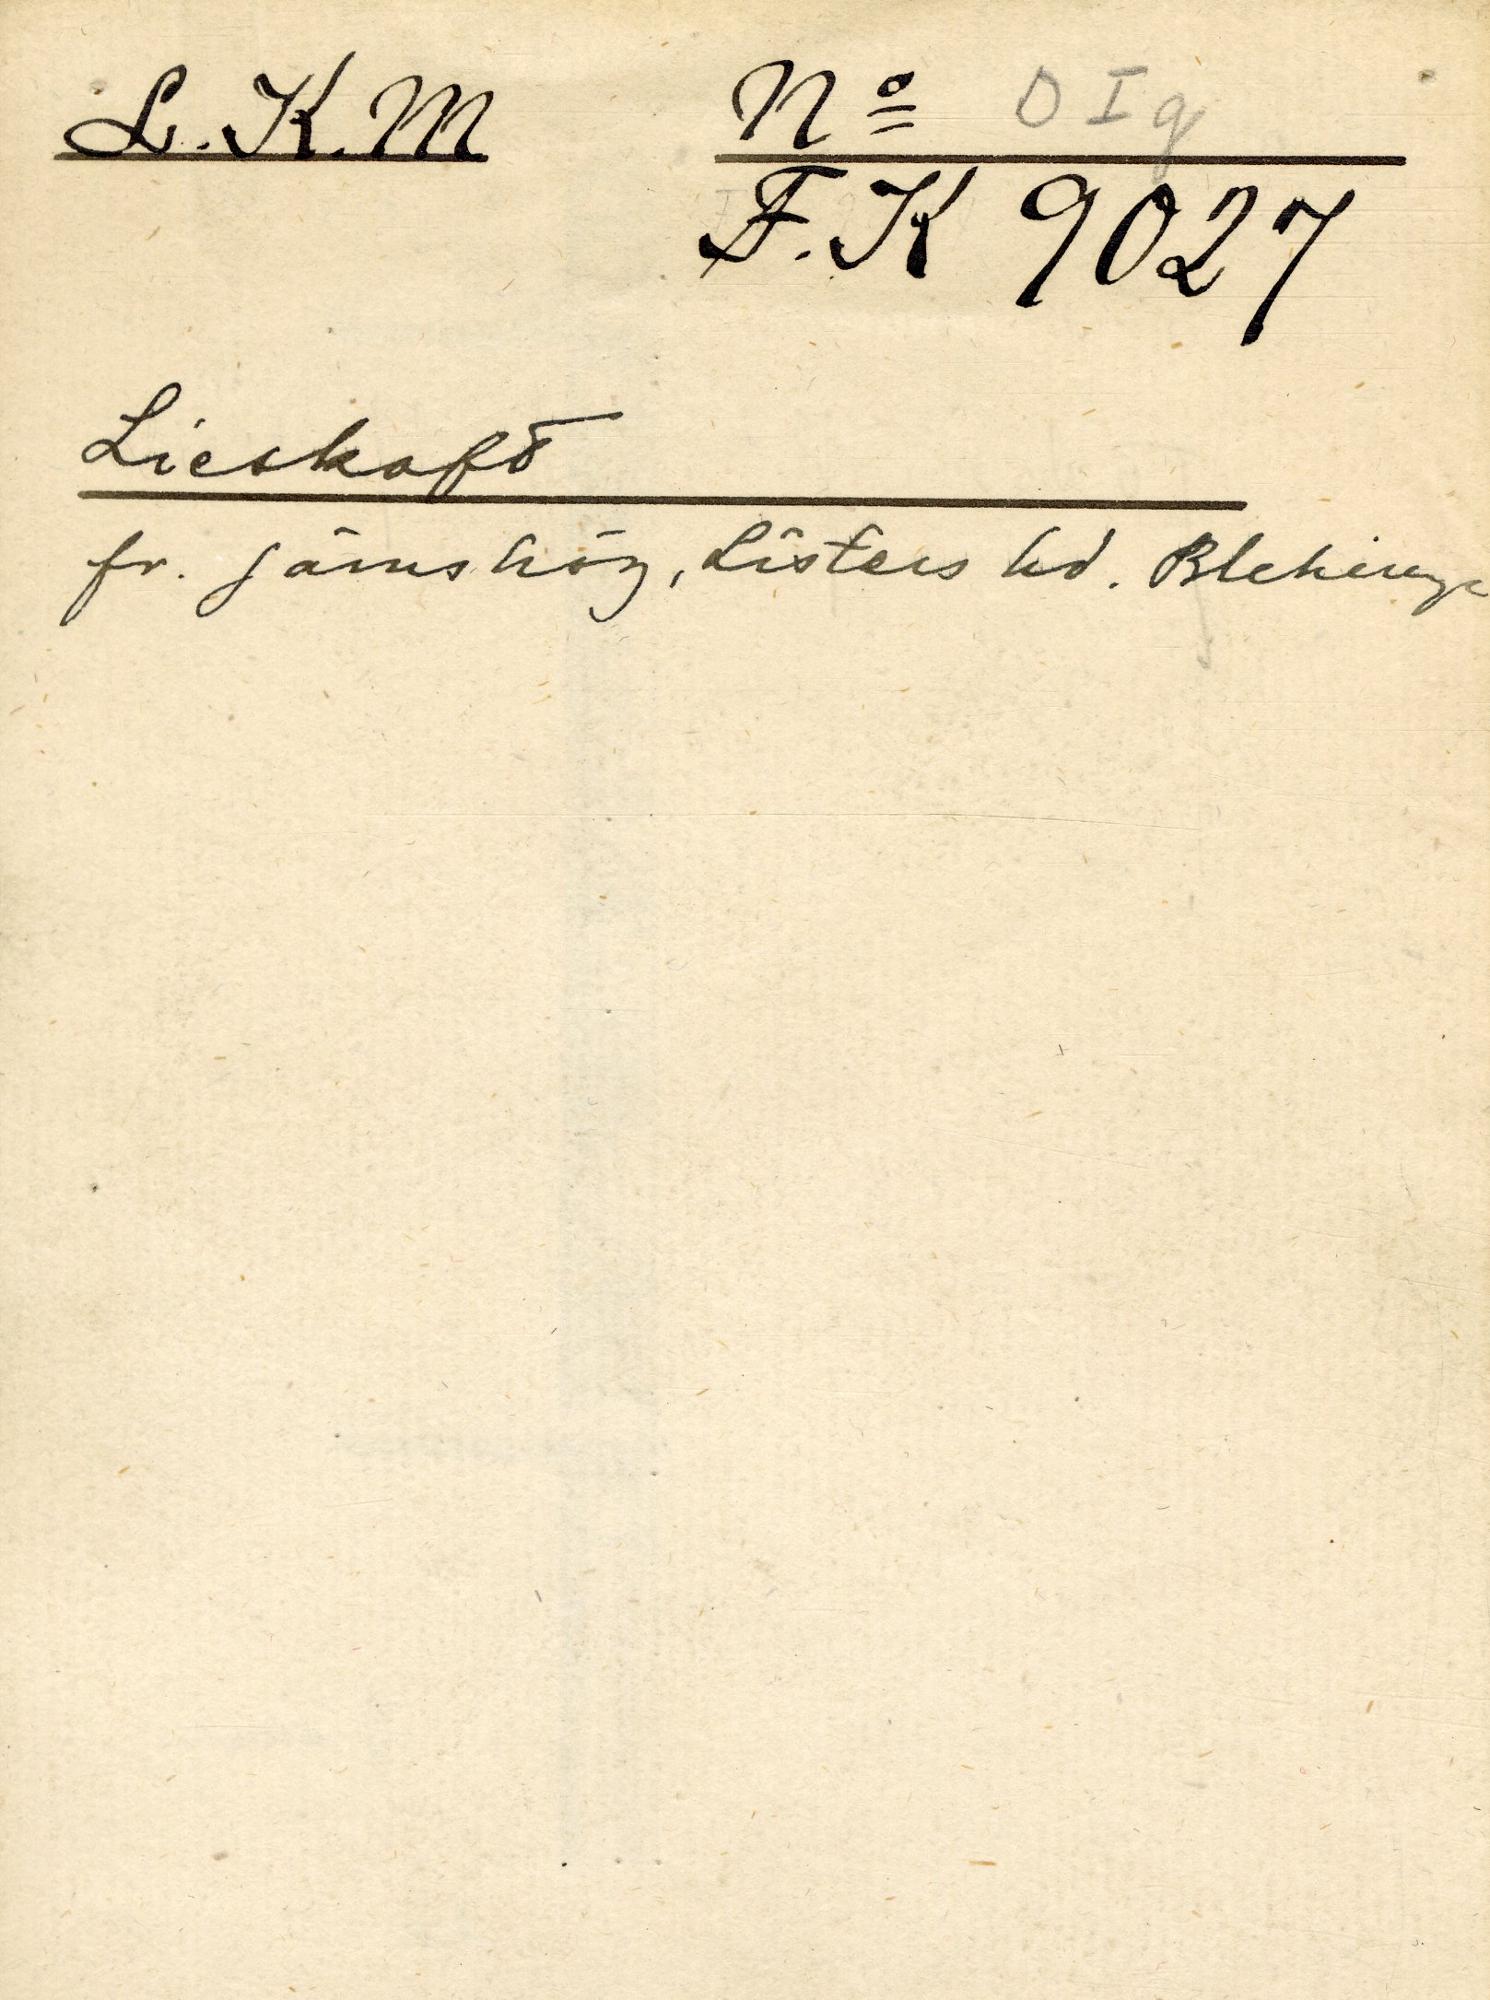 L.K.M Nº D I q
F.K 9027
Lieskaft
fr. Jämshög, Listers hd. Blekinge